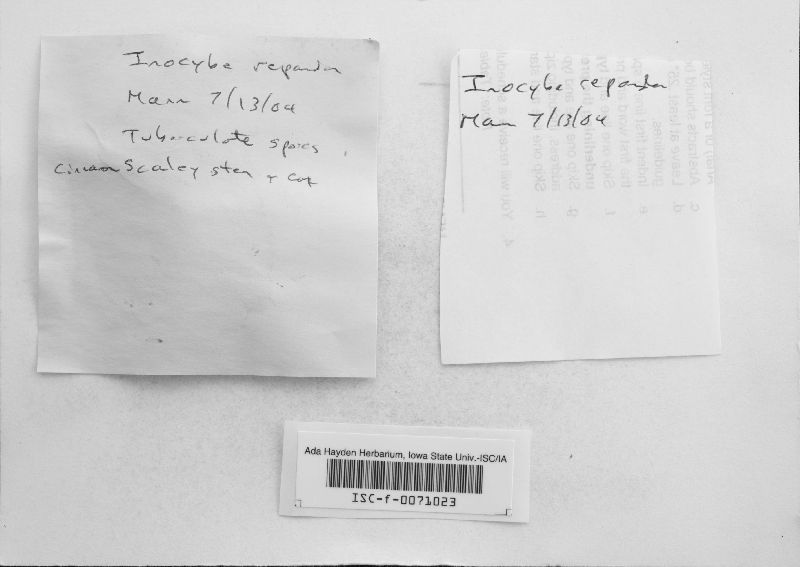 Inocybe repanda
Mann 7/13/04
Tuberculate spores
Scaley stem + cap
Inocybe repanda
Mann 7/13/04
Ada Hayden Herbarium, Iowa State Univ.-ISC/IA
ISC-f-0071023